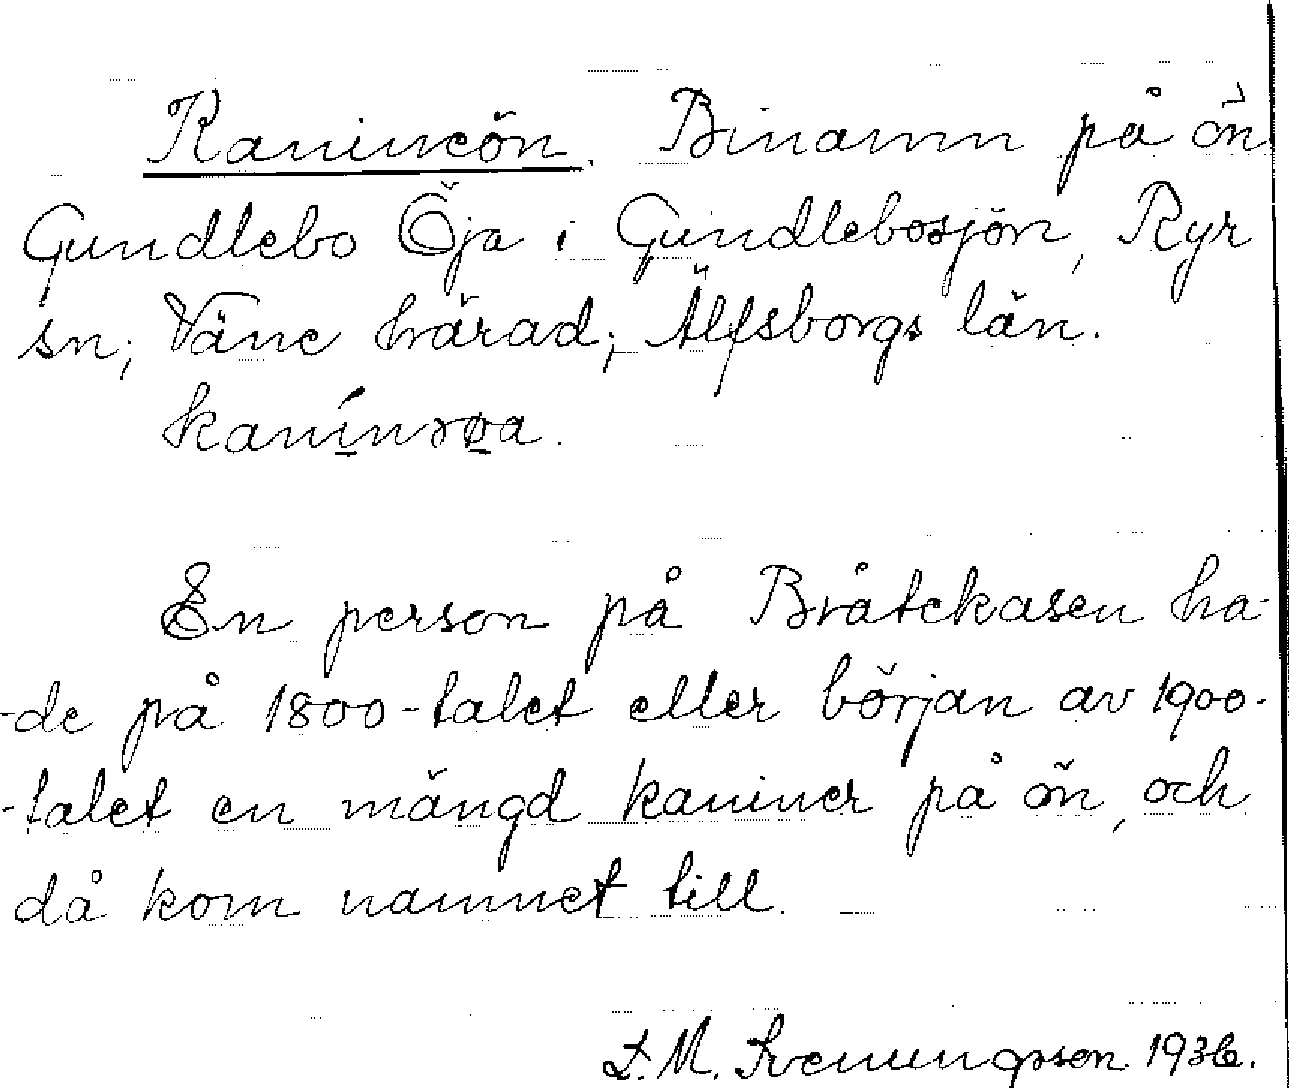 Kanineön. Binamn på ön
Gundlebo Öja i Gundlebosjön, Ryr
sn; Väne härad; Älfsborgs län.
En person på Bråtekasen ha-
-de på 1800-talet eller början av 1900-
-talet en mängd kaniner på ön, och
då kom namnet till.
L. M. Svenungsson 1936.